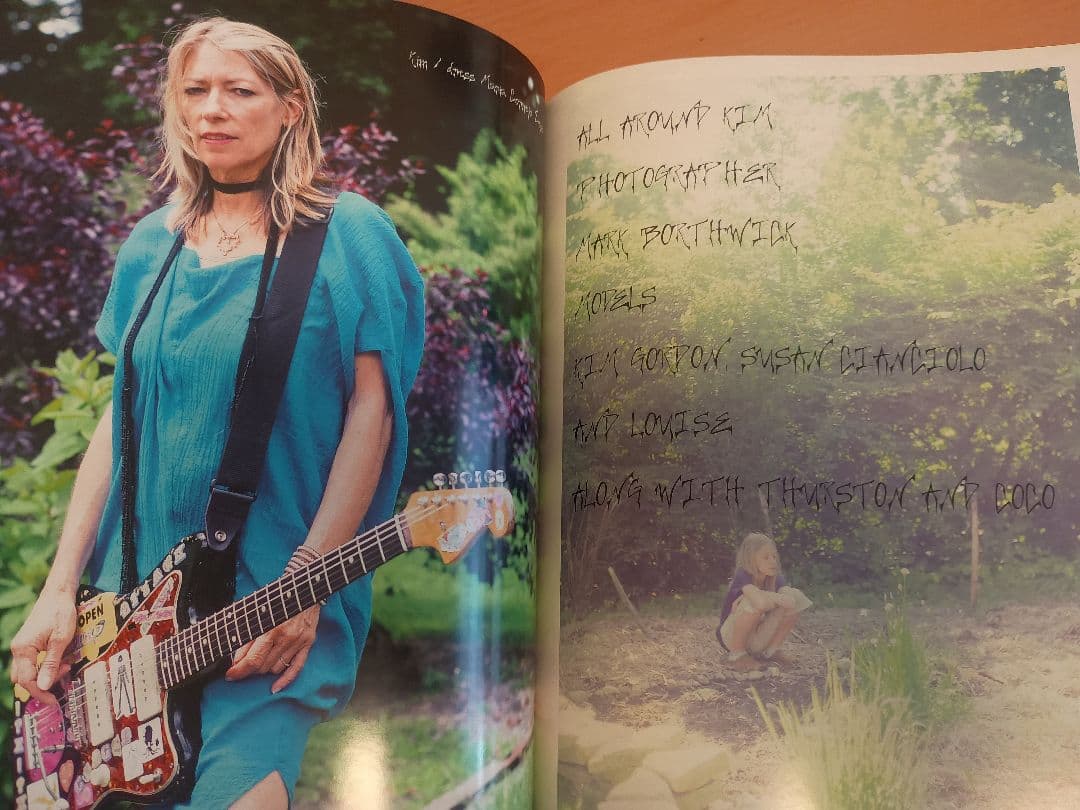 Kim / dress
OPEN
ALL AROUND KIM
PHOTOGRAPHER
MARK BORTHWICK
MODELS
KIM GORDON, SUSAN CIANCIOLO
AND LOUISE
ALONG WITH THURSTON AND COCO